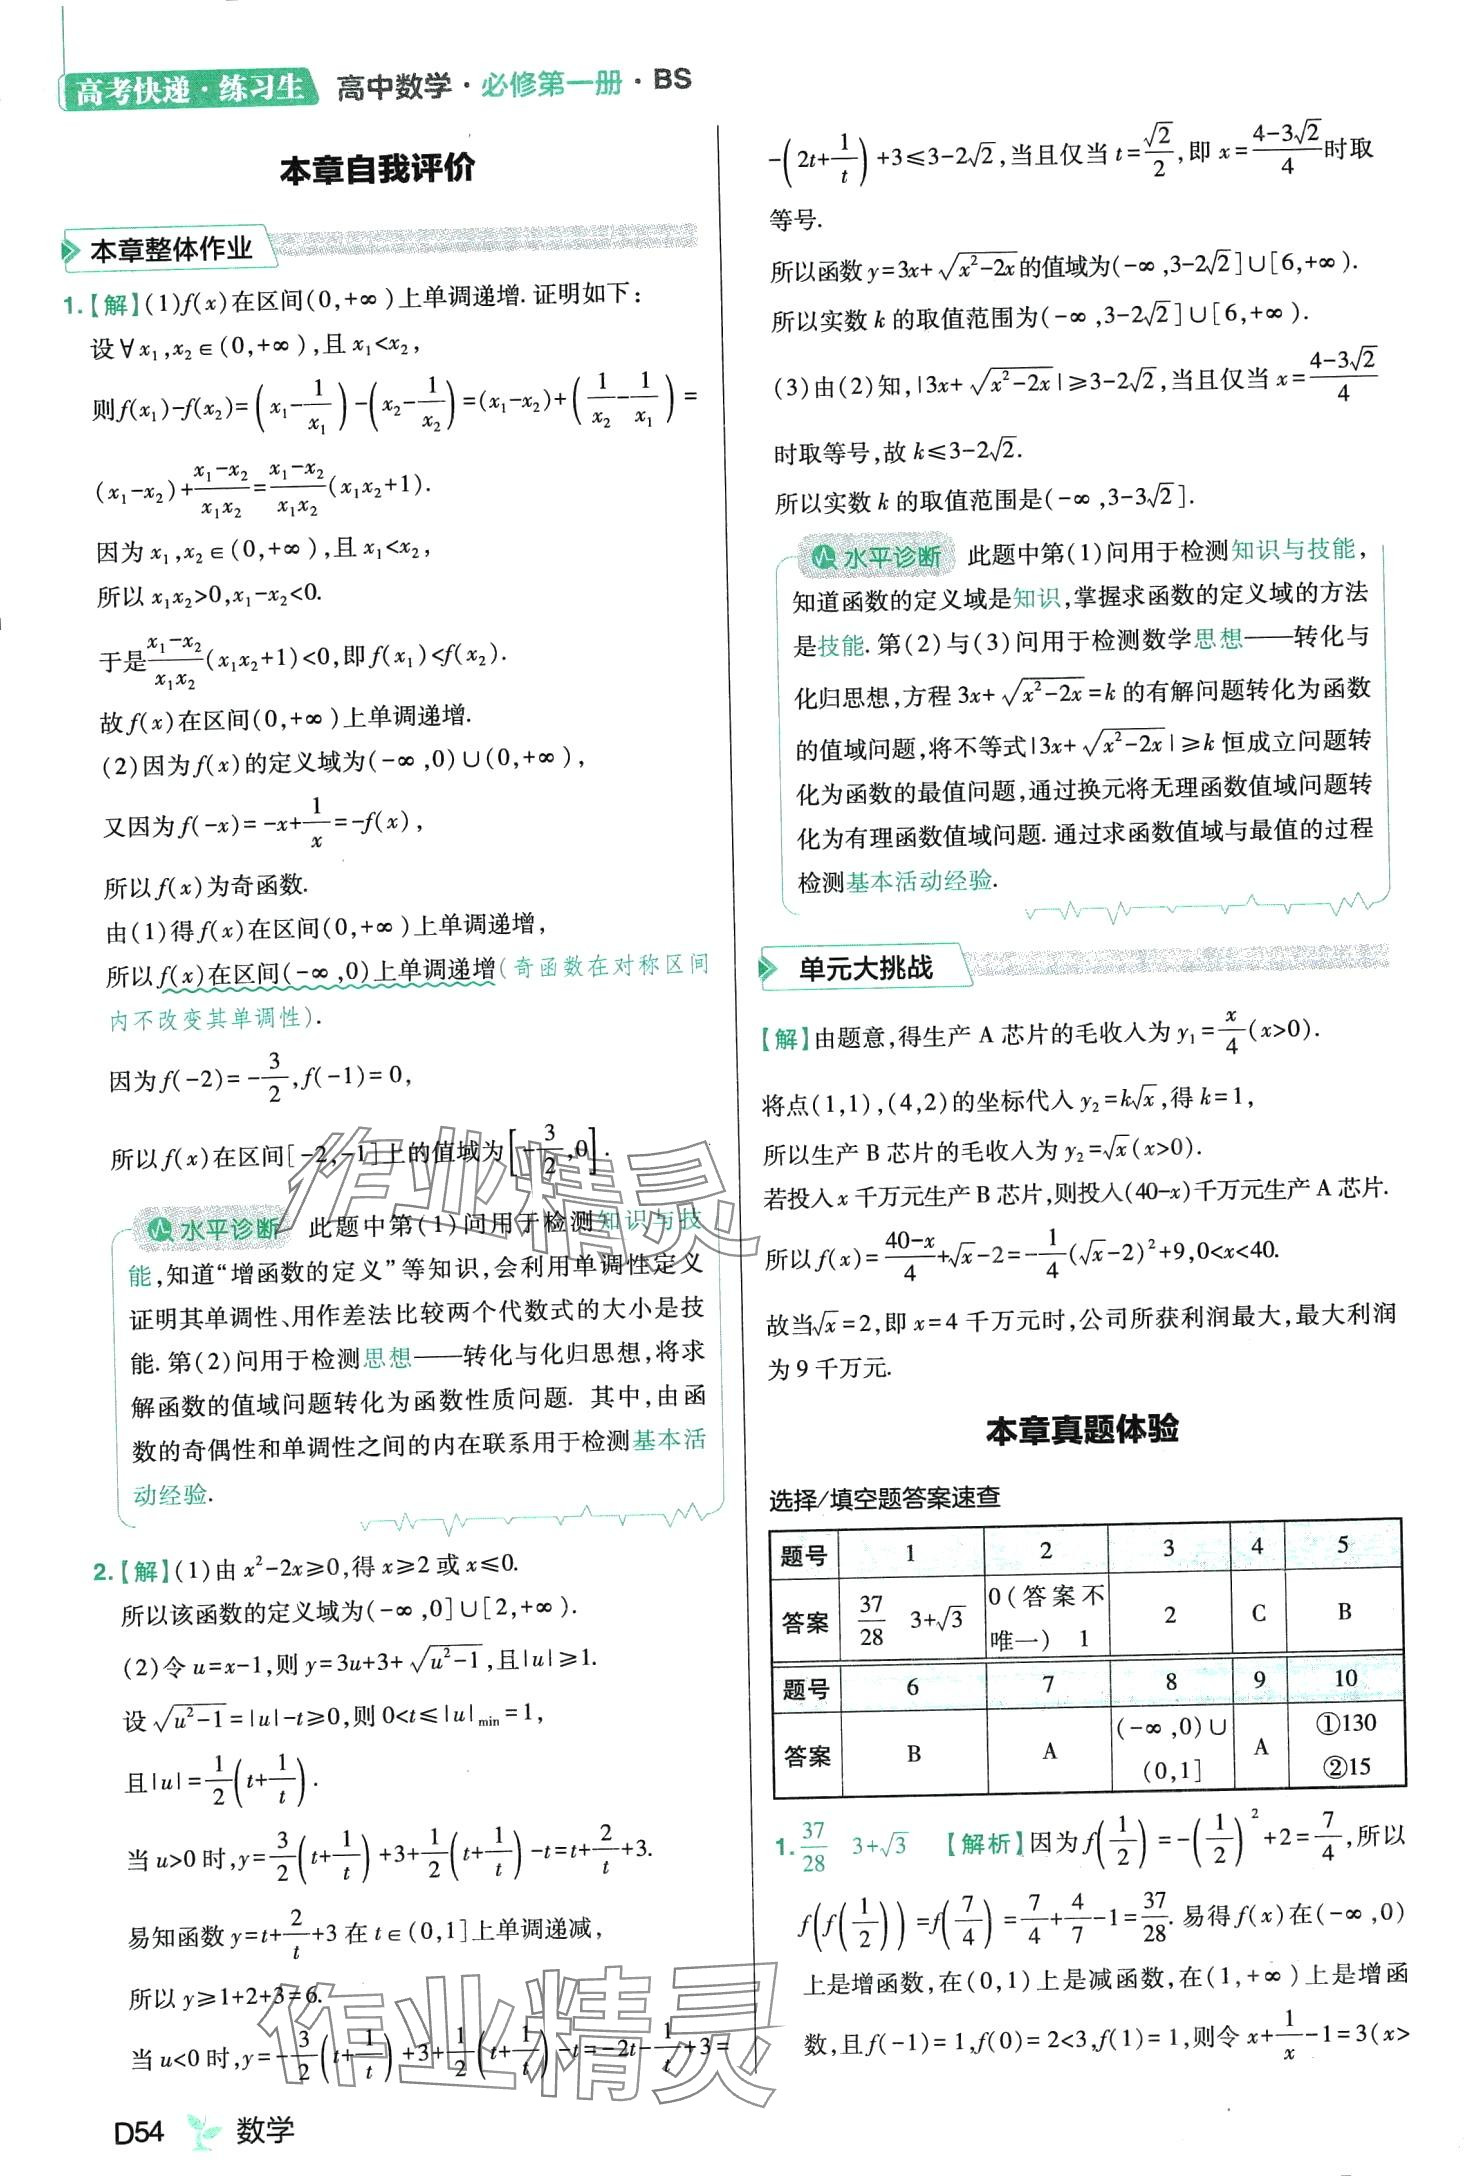 高考快递·练习生 高中数学·必修第一册·BS
本章自我评价
本章整体作业
1.【解】(1)f(x)在区间(0,+∞)上单调递增.证明如下:
设∀x₁,x₂∈(0,+∞),且x₁<x₂,
则f(x₁)-f(x₂)=(x₁-1/x₁)-(x₂-1/x₂)=(x₁-x₂)+(1/x₂-1/x₁)=
(x₁-x₂)+(x₁-x₂)/(x₁x₂)=(x₁-x₂)/(x₁x₂)(x₁x₂+1).
因为x₁,x₂∈(0,+∞),且x₁<x₂,
所以x₁x₂>0,x₁-x₂<0.
于是(x₁-x₂)/(x₁x₂)(x₁x₂+1)<0,即f(x₁)<f(x₂).
故f(x)在区间(0,+∞)上单调递增.
(2)因为f(x)的定义域为(-∞,0)∪(0,+∞),
又因为f(-x)=-x+1/x=-f(x),
所以f(x)为奇函数.
由(1)得f(x)在区间(0,+∞)上单调递增,
所以f(x)在区间(-∞,0)上单调递增(奇函数在对称区间
内不改变其单调性).
因为f(-2)=-3/2,f(-1)=0,
所以f(x)在区间[-2,-1]上的值域为[-3/2,0].
水平诊断 此题中第(1)问用于检测知识与技
能,知道“增函数的定义”等知识,会利用单调性定义
证明其单调性、用作差法比较两个代数式的大小是技
能.第(2)问用于检测思想——转化与化归思想,将求
解函数的值域问题转化为函数性质问题. 其中,由函
数的奇偶性和单调性之间的内在联系用于检测基本活
动经验.
2.【解】(1)由x²-2x≥0,得x≥2或x≤0.
所以该函数的定义域为(-∞,0]∪[2,+∞).
(2)令u=x-1,则y=3u+3+√(u²-1),且|u|≥1.
设√(u²-1)=|u|-t≥0,则0<t≤|u|min=1,
且|u|=1/2(t+1/t).
当u>0时,y=3/2(t+1/t)+3+1/2(t+1/t)-t=t+2/t+3.
易知函数y=t+2/t+3在t∈(0,1]上单调递减,
所以y≥1+2+3=6.
当u<0时,y=-3/2(t+1/t)+3+1/2(t+1/t)-t=-2t-1/t+3=
D54 数学
-(2t+1/t)+3≤3-2√2,当且仅当t=√2/2,即x=(4-3√2)/4时取
等号.
所以函数y=3x+√(x²-2x)的值域为(-∞,3-2√2]∪[6,+∞).
所以实数k的取值范围为(-∞,3-2√2]∪[6,+∞).
(3)由(2)知,|3x+√(x²-2x)|≥3-2√2,当且仅当x=(4-3√2)/4
时取等号,故k≤3-2√2.
所以实数k的取值范围是(-∞,3-3√2].
水平诊断 此题中第(1)问用于检测知识与技能,
知道函数的定义域是知识,掌握求函数的定义域的方法
是技能.第(2)与(3)问用于检测数学思想——转化与
化归思想,方程3x+√(x²-2x)=k的有解问题转化为函数
的值域问题,将不等式|3x+√(x²-2x)|≥k恒成立问题转
化为函数的最值问题,通过换元将无理函数值域问题转
化为有理函数值域问题.通过求函数值域与最值的过程
检测基本活动经验.
单元大挑战
【解】由题意,得生产A芯片的毛收入为y₁=x/4(x>0).
将点(1,1),(4,2)的坐标代入y₂=k√x,得k=1,
所以生产B芯片的毛收入为y₂=√x(x>0).
若投入x千万元生产B芯片,则投入(40-x)千万元生产A芯片.
所以f(x)=(40-x)/4+√x-2=-1/4(√x-2)²+9,0<x<40.
故当√x=2,即x=4千万元时,公司所获利润最大,最大利润
为9千万元.
本章真题体验
选择/填空题答案速查
题号 1 2 3 4 5
答案 37/28 3+√3 0(答案不唯一) 1 2 C B
题号 6 7 8 9 10
答案 B A (-∞,0)∪(0,1] A ①130 ②15
1. 37/28 3+√3 【解析】因为f(1/2)=-(1/2)²+2=7/4,所以
f(f(1/2))=f(7/4)=7/4+4/7-1=37/28.易得f(x)在(-∞,0)
上是增函数,在(0,1)上是减函数,在(1,+∞)上是增函
数,且f(-1)=1,f(0)=2<3,f(1)=1,则令x+1/x-1=3(x>
作业精灵
作业精灵